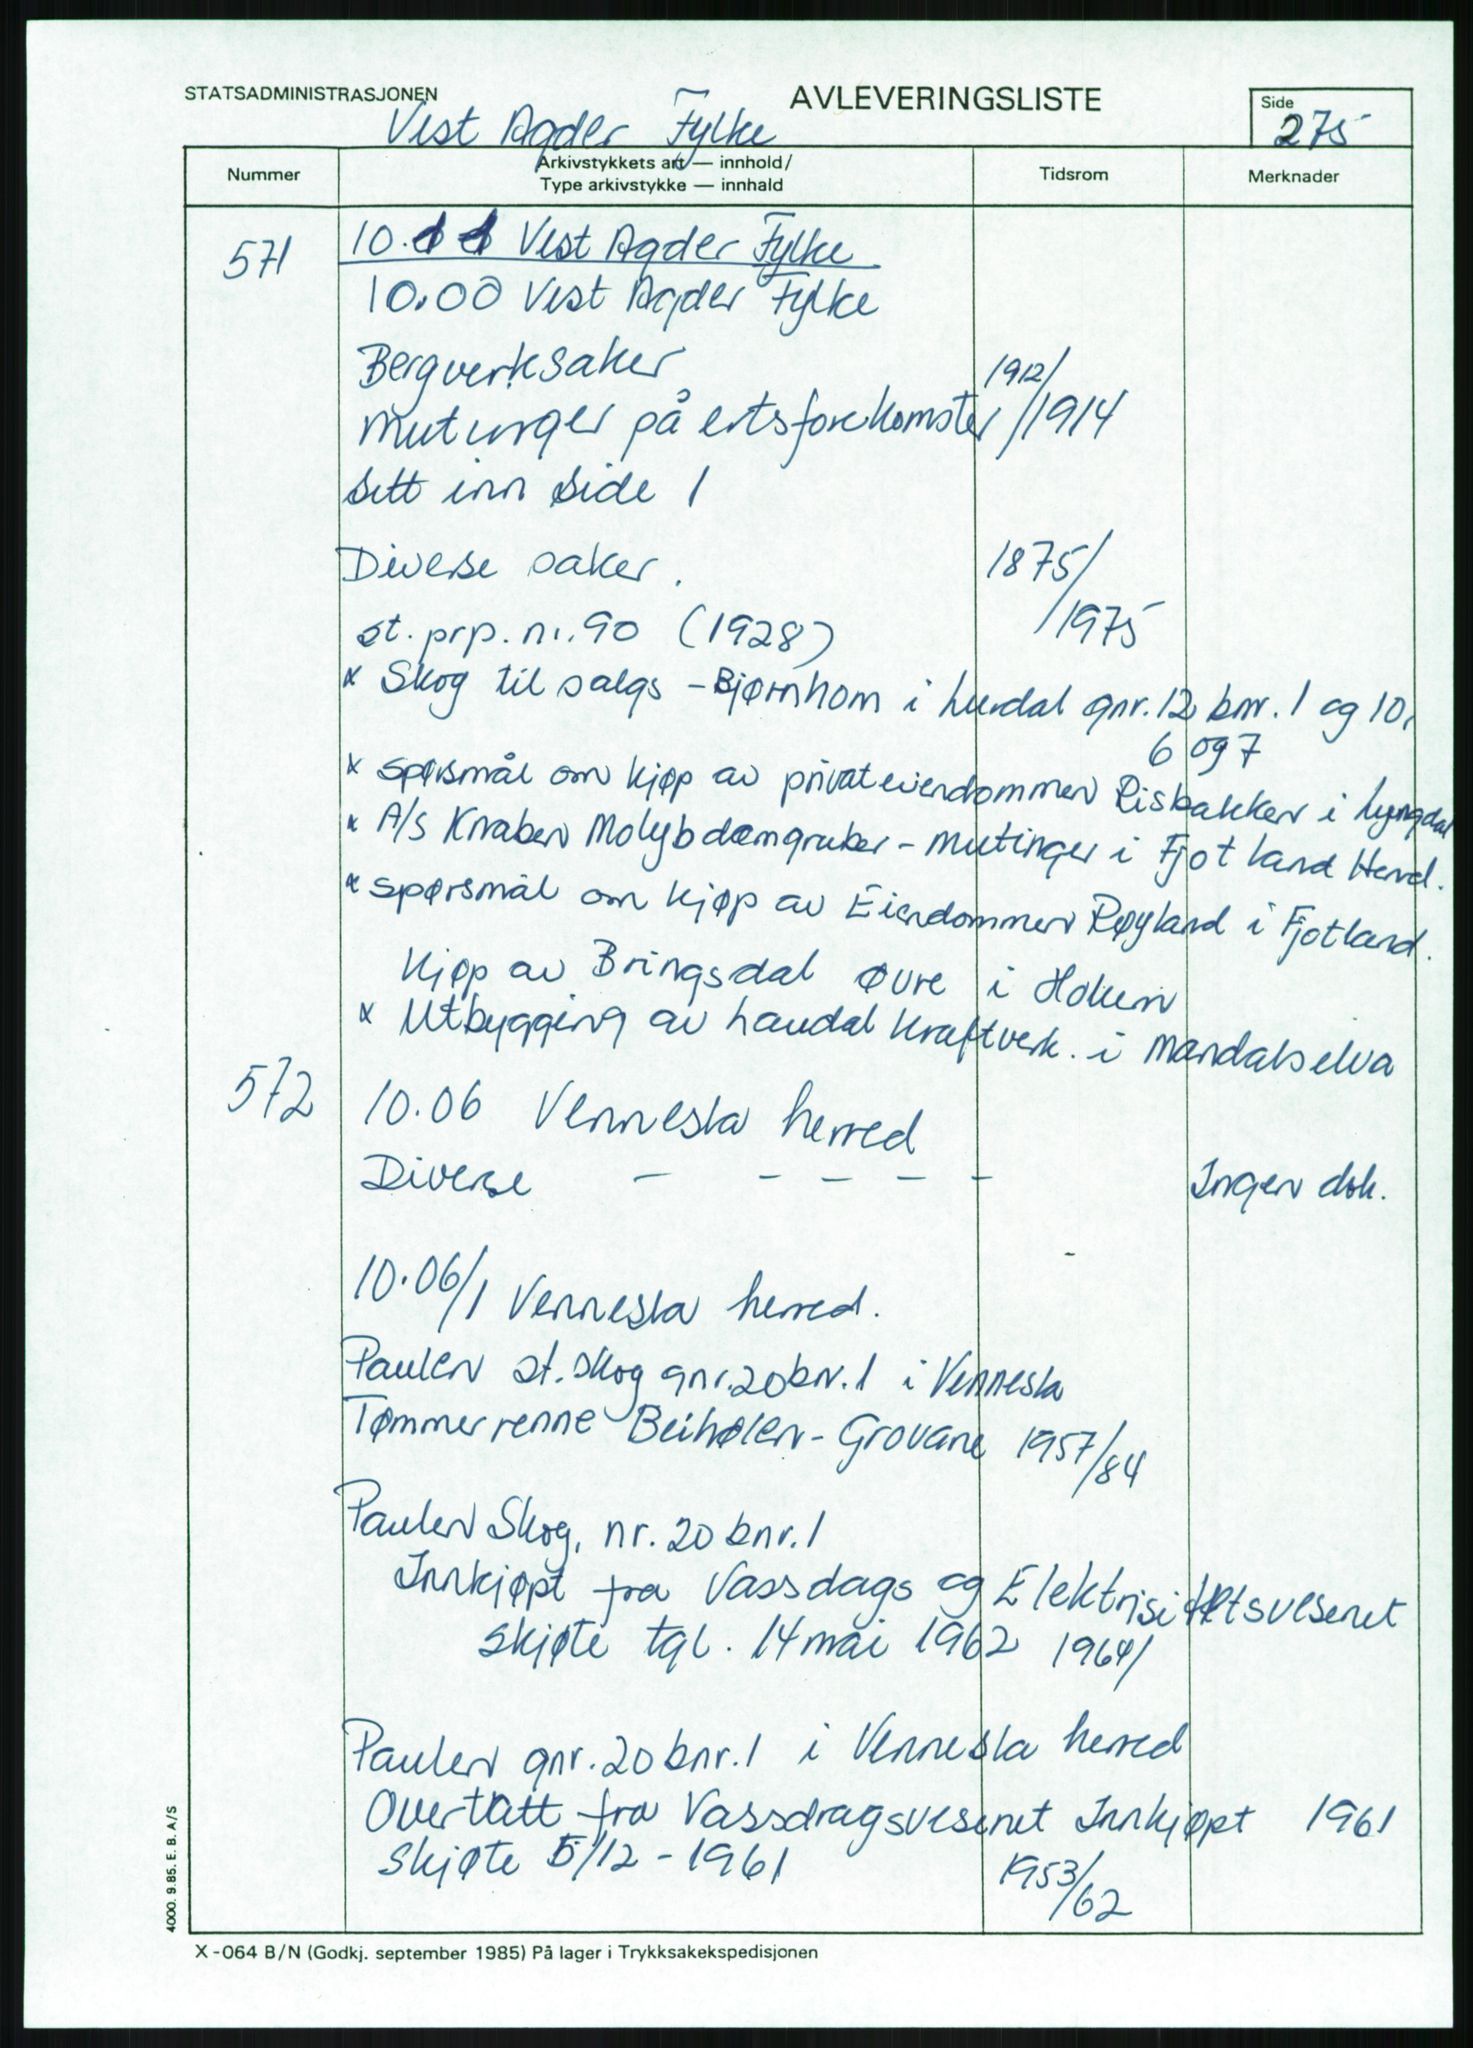 STATSADMINISTRASJONEN
AVLEVERINGSLISTE
Side
275
Vest Agder Fylke
Nummer
Arkivstykkets art — innhold/
Type arkivstykke — innhald
Tidsrom
Merknader
571
10. Vest Agder Fylke
10.00 Vest Agder Fylke
Bergverksaker 1912/
Mutinger på ertsforekomster /1914
Sett inn side 1
Diverse saker. 1875/
/1975
st. prp. nr. 90 (1928)
x Skog til salgs - Bjørnhom i gnr. 12 bnr. 1 og 10,
6 og 7
x spørsmål om kjøp av privateiendommen Risbakken i Lyngdal
x A/S Knaben Molybdængruber - mutinger i Fjotland Herred.
x spørsmål om kjøp av Eiendommen Røyland i Fjotland.
Kjøp av Bringsdal øvre i Holum
x Utbygging av Laudal Kraftverk. i Mandalselva
572
10.06 Vennesla herred
Diverse - - - - - Ingen dok.
10.06/1 Vennesla herred.
Paulen st. skog gnr. 20 bnr. 1 i Vennesla
Tømmerrenne Beihølen - Grovane 1957/84
Paulen Skog, nr. 20 bnr. 1
Innkjøpt fra Vassdags og Elektrisitetsvesenet
skjøte tgl. 14 mai 1962 1964/
Paulen gnr. 20 bnr. 1 i Vennesla herred
Overtatt fra Vassdragsvesenet Innkjøpt 1961
Skjøte 5/12 - 1961 1953/62
4000. 9.85. E. B. A/S
X-064 B/N (Godkj. september 1985) På lager i Trykksakekspedisjonen